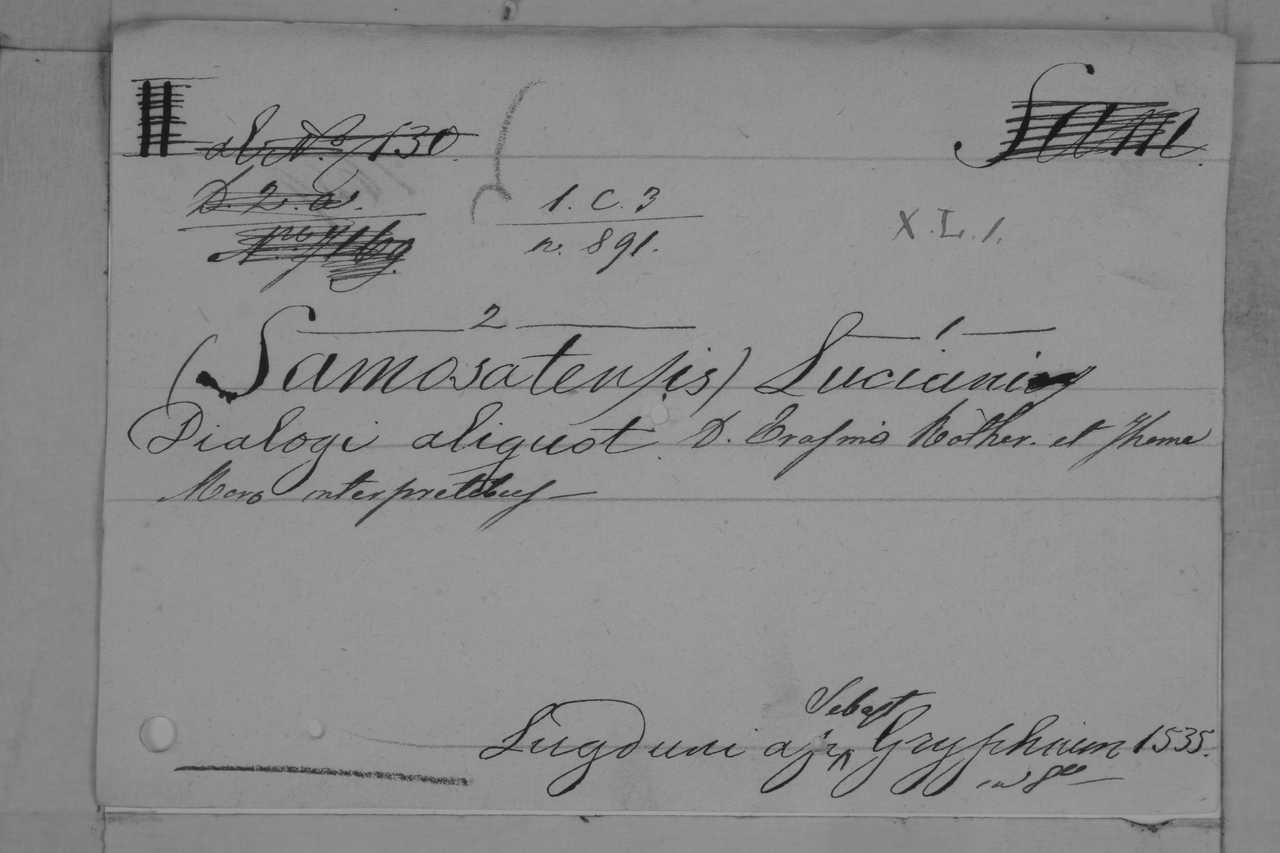 al N.º 130. Sam.
D. 2. a. 1. C. 3 X. L. 1.
n. 891.
2 1
(Samosatensis) Luciani
Dialogi aliquot. D. Erasmo Rother. et Thoma
Moro interpretibus —
Sebast
Lugduni ap. Gryphium 1535.
in 8vo